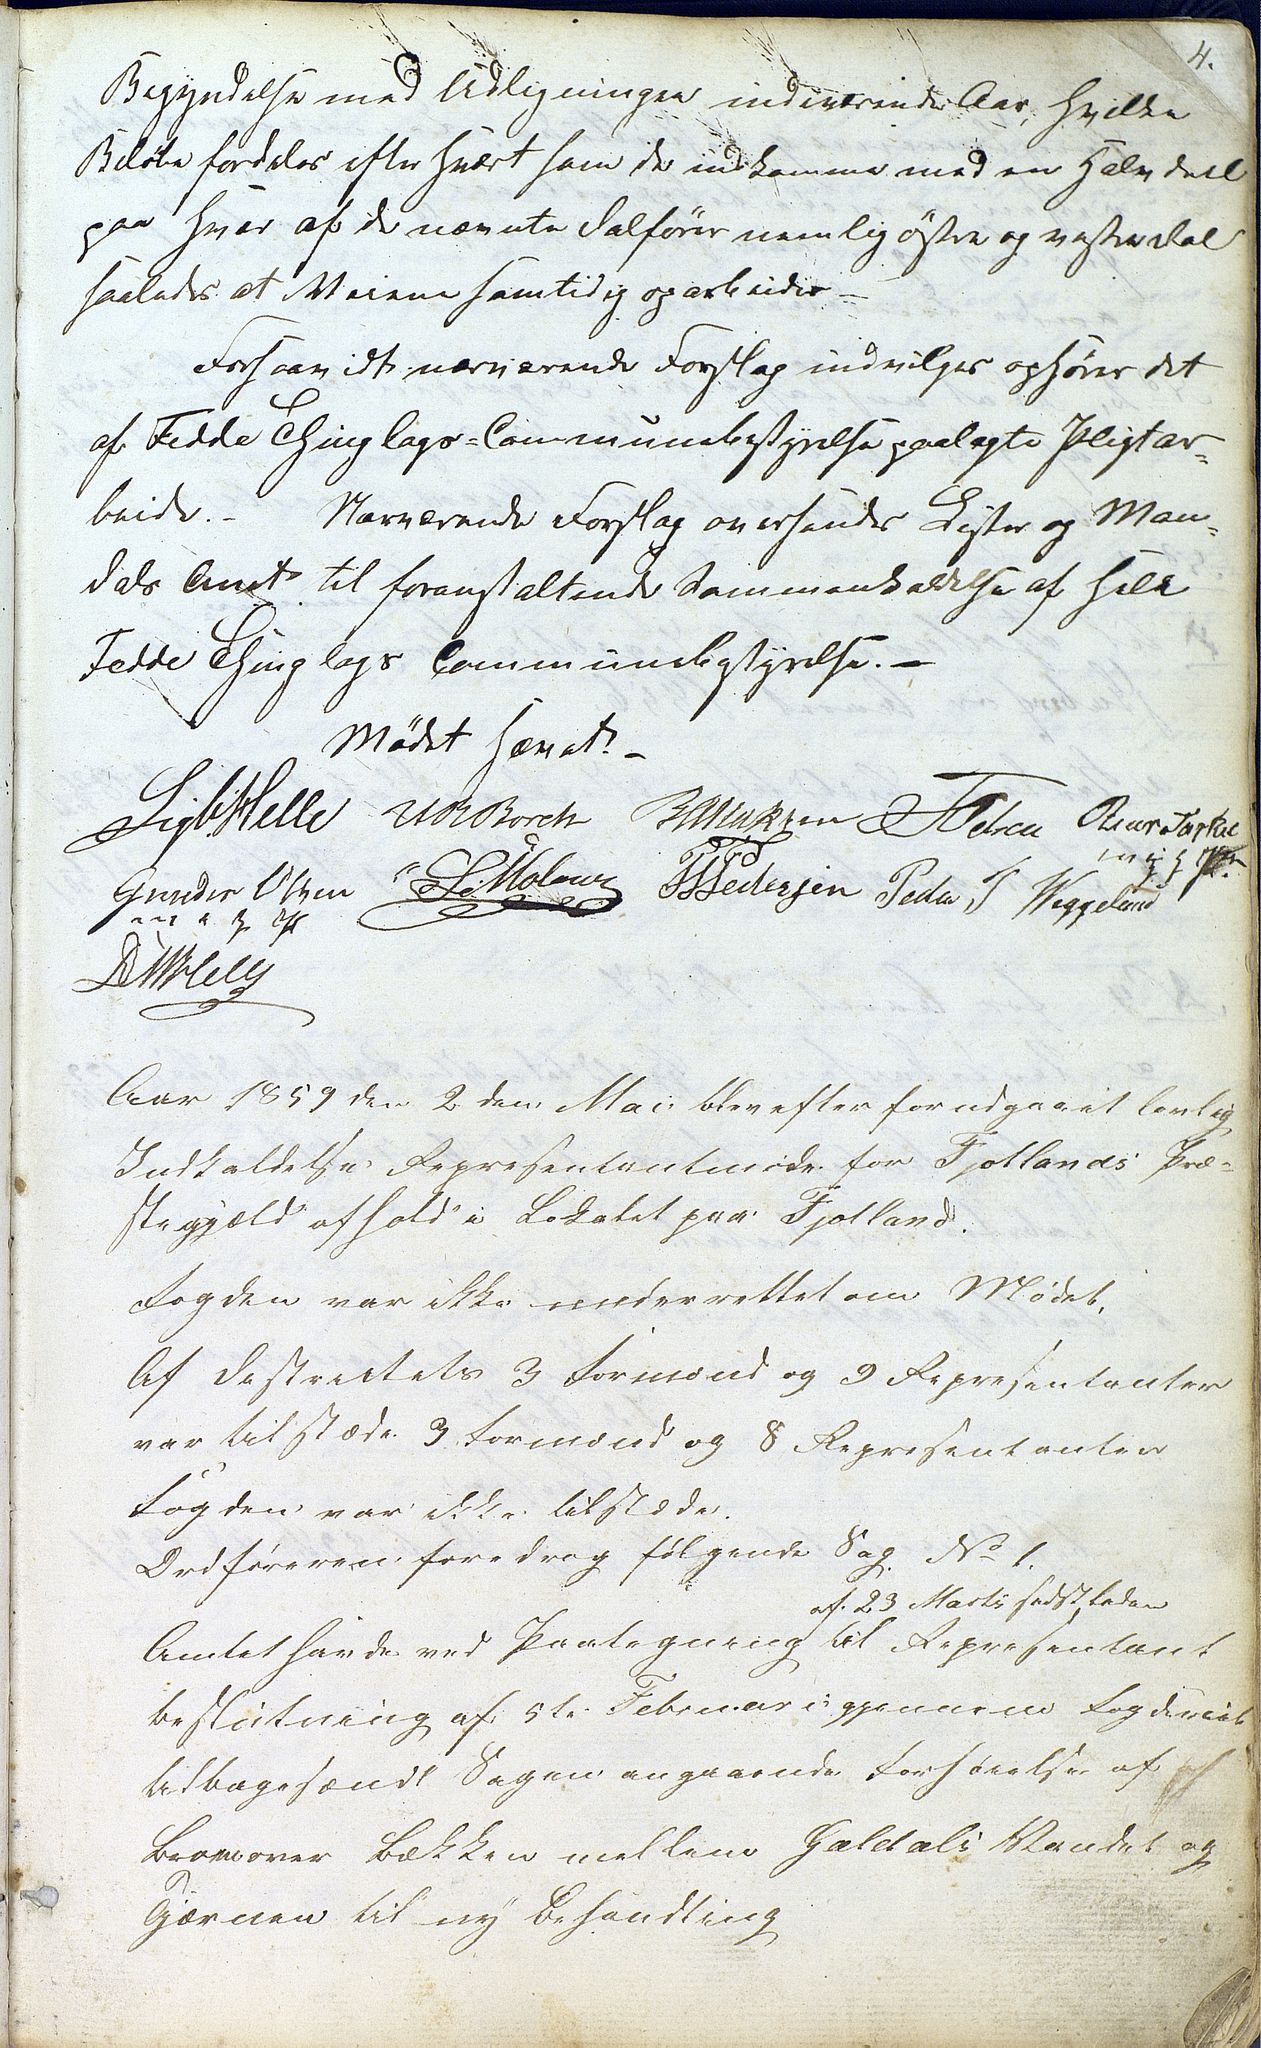 4.
Begyndelse med Udligningen indeværende Aar, hvilke
Beløbe fordeles efter hvært som de indkomme med en Halvdeel
paa hver af de nævnte Dalfører nemlig østre og vestre Dal
saaledes at Veiene samtidig oparbeides –
Forsaavidt nærværende Forslag indvilges ophører det
af Fedde Thinglags-Communebestyrelse paalagte Pligtar-
beide. – Nærværende Forslag oversendes Lister og Man-
dals Amt til foranstaltende Sammenkaldelse af hele
Fedde Thinglags Communebestyrelse. –
Mødet hævet. –
Helle Borch Omar Tarkel
Gunder Olsen Pedersen Peder T Veggeland
m i P
Aar 1859 den 2den Mai blev efter forudgaaet lovlig
Indkaldelse Representantmøde for Fjotlands Præ-
stegjæld afhold i Lokalet paa Fjotland.
Fogden var ikke underrettet om Mødet.
Af Destrektets 3 Formænd og 9 Representanter
var tilstæde 3 Formænd og 8 Representanter
Fogden var ikke tilstæde.
Ordføreren foredrog følgende Sag No 1.
af 23 Marts sidstleden
Amtet havde ved Paategning til Representant
beslutning af 5te Februar igjennem Fogderiet
tilbagesendt Sagen angaaende Forhøielse af
Broen over Bækken mellem Galdals Vandet og
Tjærnen til ny Behandling